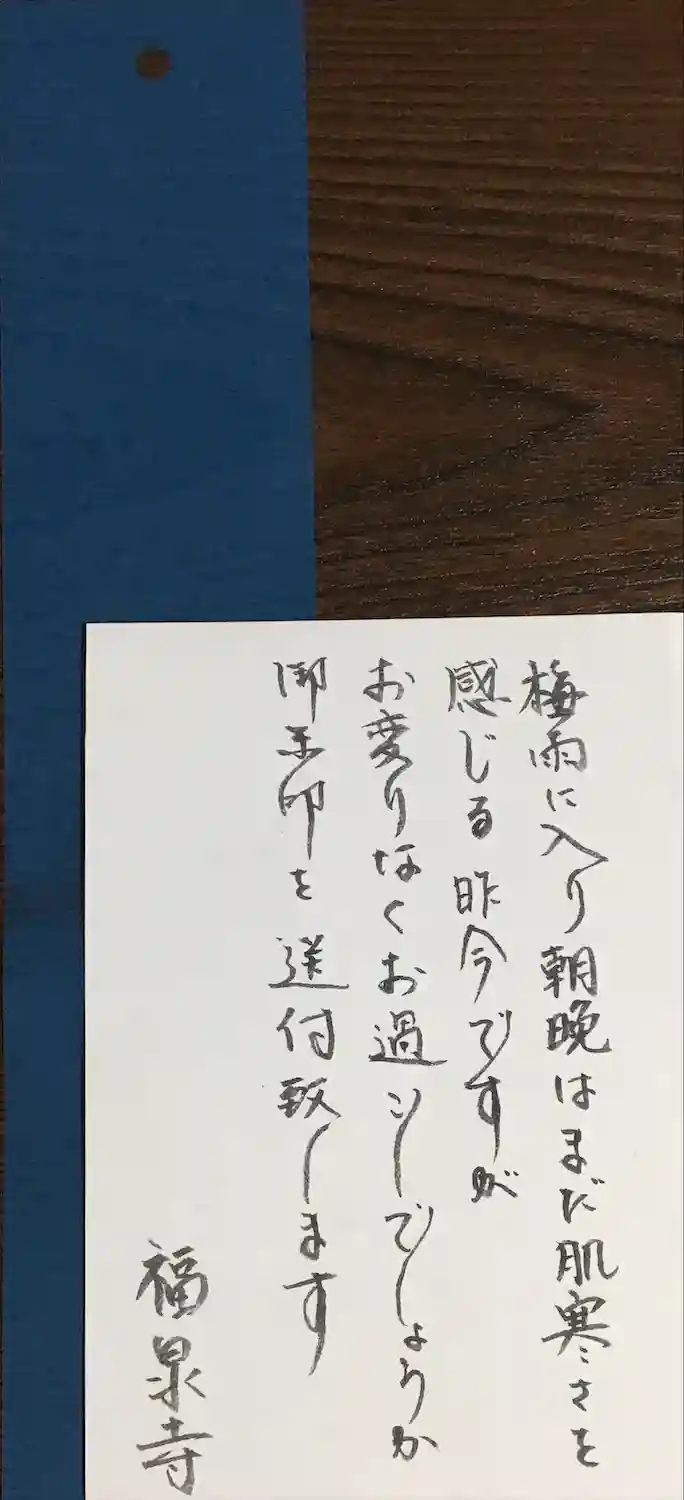 梅雨に入り朝晩はまだ肌寒さを
感じる昨今ですが
お変りなくお過ごしでしょうか
御朱印を送付致します
福泉寺